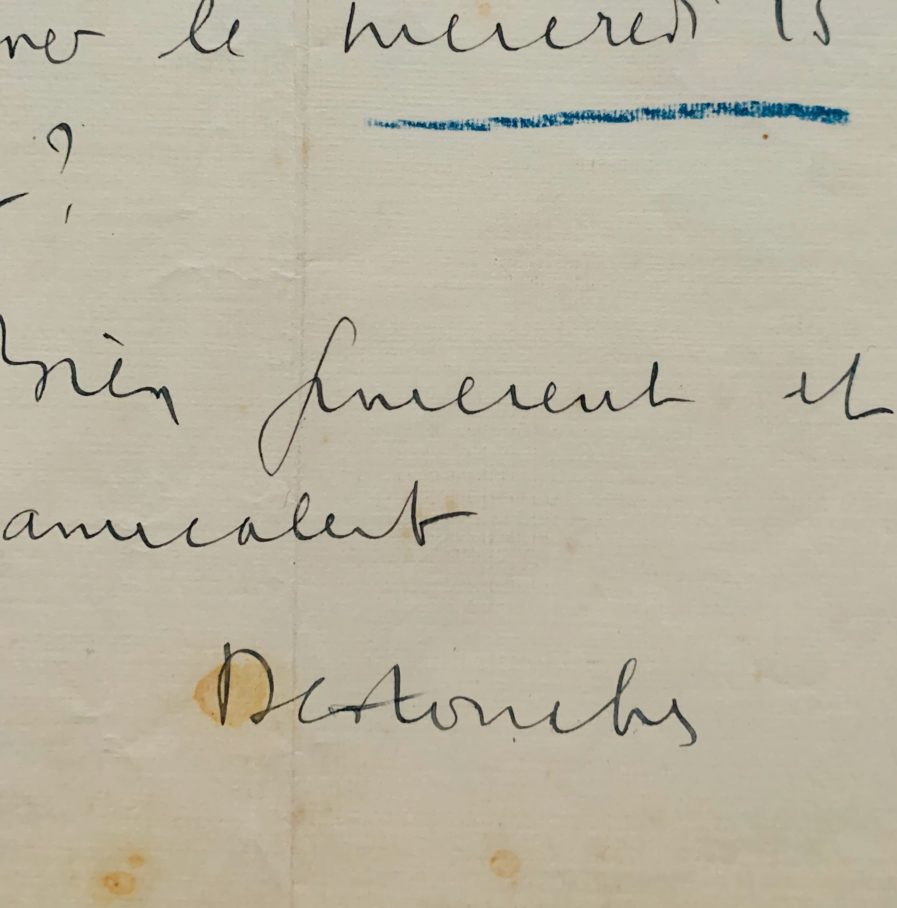 le mercredi 15
?
bien sincerent et
amicalent
Destouches